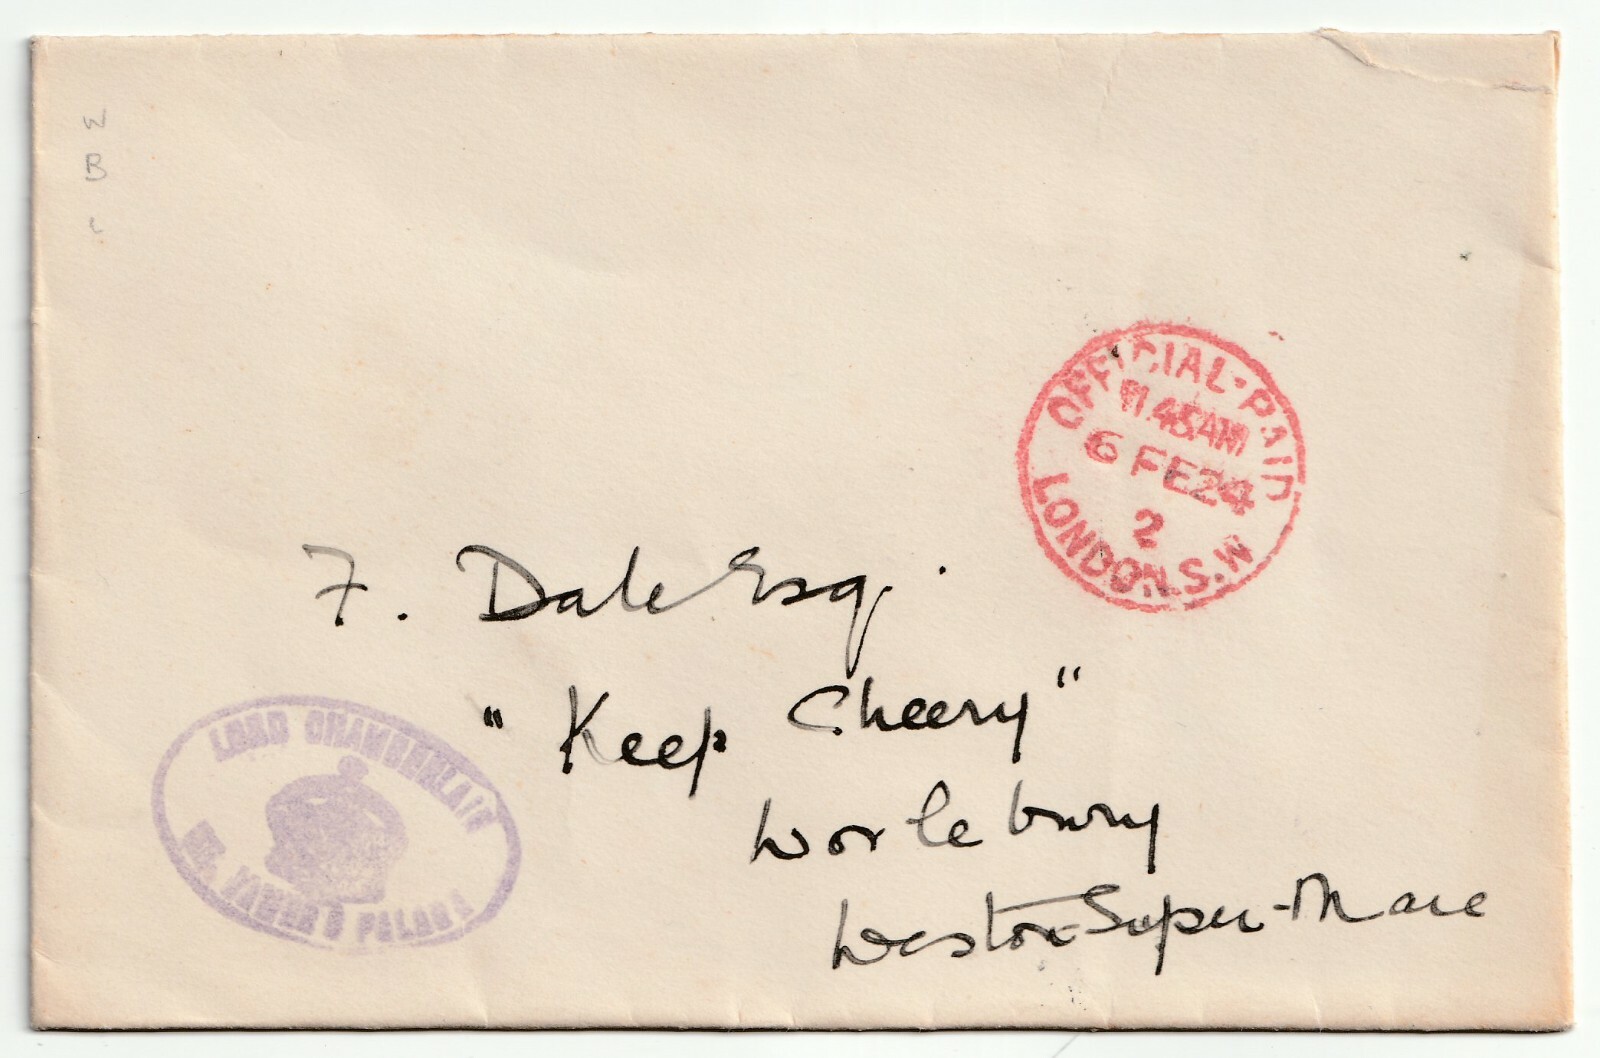 W
B
OFFICIAL PAID
11.45AM
6 FE 24
2
LONDON.S.W
F. Dale Esq.
"Keep Cheery"
Worlebury
Weston-Super-Mare
LORD CHAMBERLAIN
ST. JAMES'S PALACE